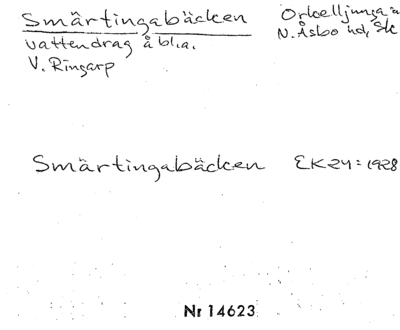 Smärtingabäcken Örkelljunga sn
vattendrag å bl.a. N. Åsbo hd, Sk
V. Ringarp
Smärtingabäcken EK 24 : 1928
Nr 14623